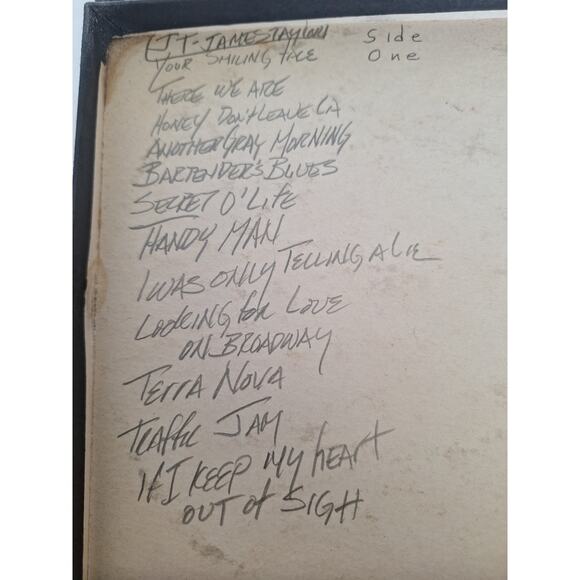 JT-JAMES TAYLOR Side
YOUR SMILING FACE One
THERE WE ARE
HONEY DON'T LEAVE LA
ANOTHER GRAY MORNING
BARTENDER'S BLUES
SECRET O' LIFE
HANDY MAN
I WAS ONLY TELLING A LIE
LOOKING FOR LOVE
ON BROADWAY
TERRA NOVA
TRAFFIC JAM
If I KEEP MY hEART
OUT Of SIGH